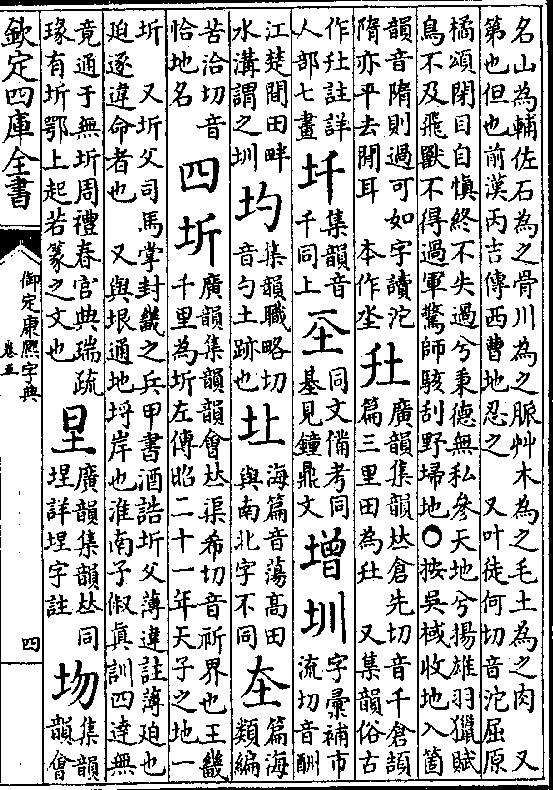 名山為輔佐石為之骨川為之脈艸木為之毛土為之肉　又
第也但也前漢丙吉傳西曹地忍之　又叶徒何切音沱屈原
橘頌閉目自慎終不失過兮秉德無私參天地兮揚雄羽獵賦
鳥不及飛獸不得過軍驚師駭刮野埽地〇按吳棫收地入箇
韻音隋則過可如字讀沱
隋亦平去閒耳　本作坔
圱
廣韻集韻𠀤倉先切音千倉頡
篇三里田為圱　又集韻俗古
作圱註詳
人部七畫
圲
集韻音
千同上
同文備考同
基見鐘鼎文
增圳
字彙補市
流切音酬
江楚間田畔
水溝謂之圳
圴
集韻職略切
音勺土跡也
海篇音蕩高田
與南北字不同
篇海
類編
苦洽切音
恰地名
四圻
廣韻集韻韻會𠀤渠希切音祈界也王畿
千里為圻左傳昭二十一年天子之地一
圻　又圻父司馬掌封畿之兵甲書酒誥圻父薄違註薄迫也
迫逐違命者也　又與垠通地垺岸也淮南子俶真訓四達無
竟通于無圻周禮春官典瑞疏
瑑有圻鄂上起若篆之文也
圼
廣韻集韻𠀤同
詳字註
圽
集韻
韻會
欽定四庫全書
御定康熙字典
卷五
四